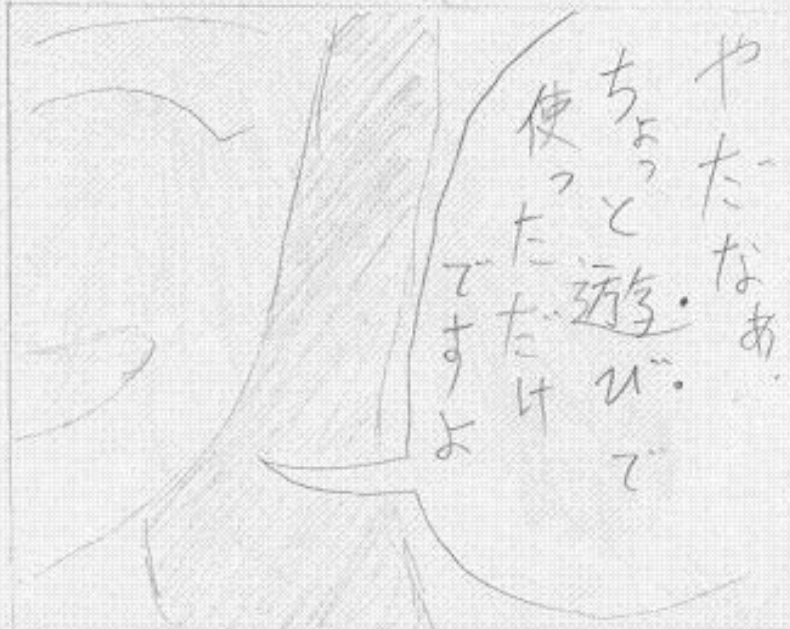 やだなぁ
ちょっと遊びで
使っただけ
ですよ